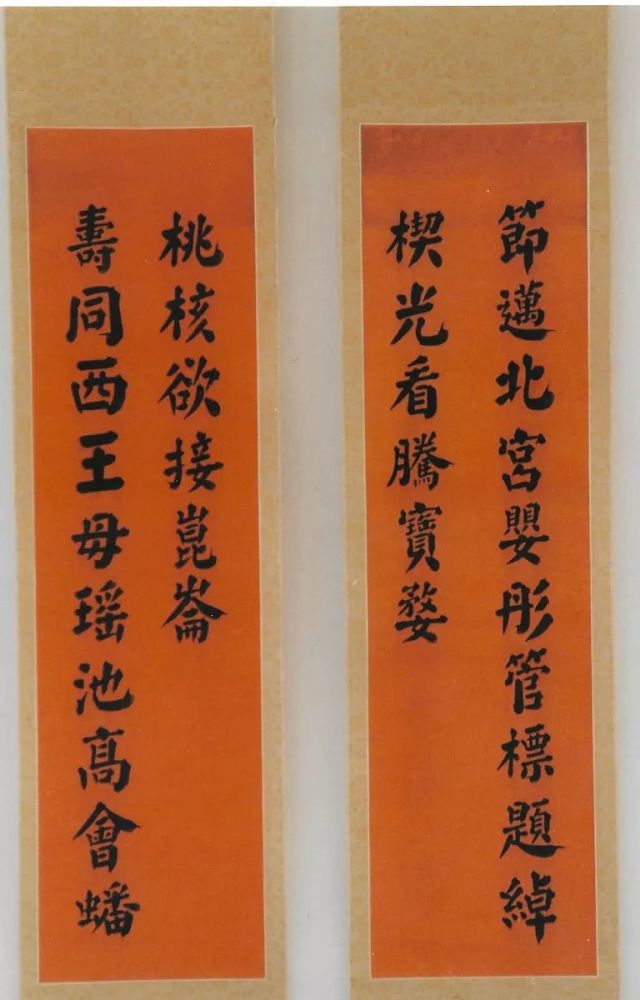 節邁北宮嬰彤管標題綽
楔光看騰寶婺
壽同西王母瑶池髙會蟠
桃核欲接崑崙